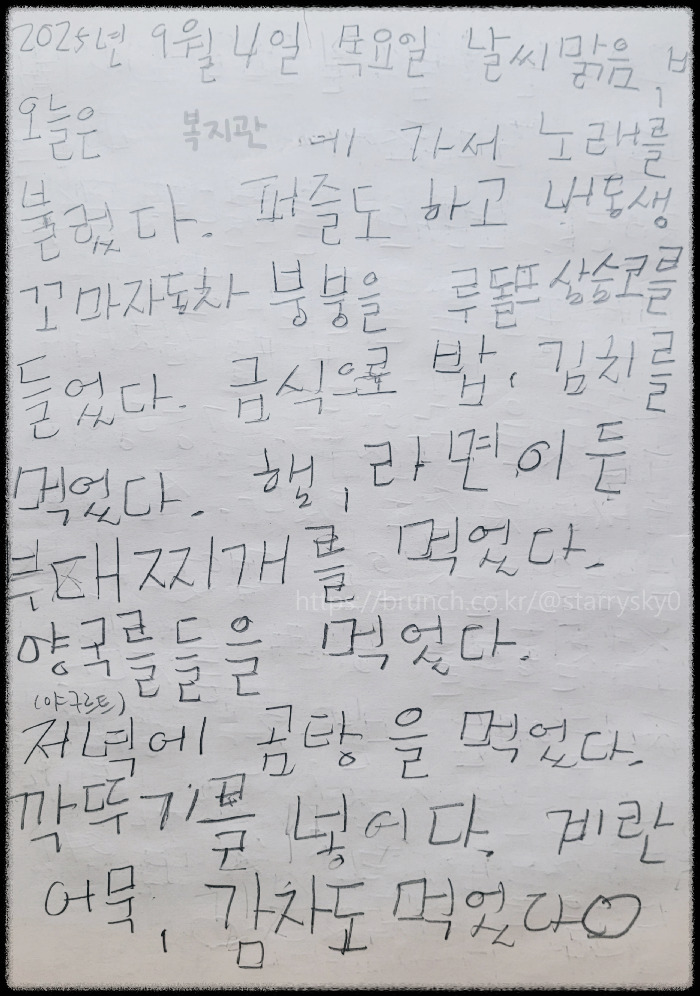 2025년 9월 4일 목요일 날씨맑음,
오늘은 복지관 에 가서 노래를
불렀다. 퍼즐도 하고 내동생
꼬마자동차 붕붕을 루돌프 삼슴코를
들었다. 금식으로 밥, 김치를
먹었다. 햄, 라면이 든
부대찌개를 먹었다.
https://brunch.co.kr/@starrysky0
양국를들을 먹었다.
(야구르트)
저녁에 곰탕을 먹었다.
깍뚜기를 넣어다. 계란
어묵, 감차도 먹었다